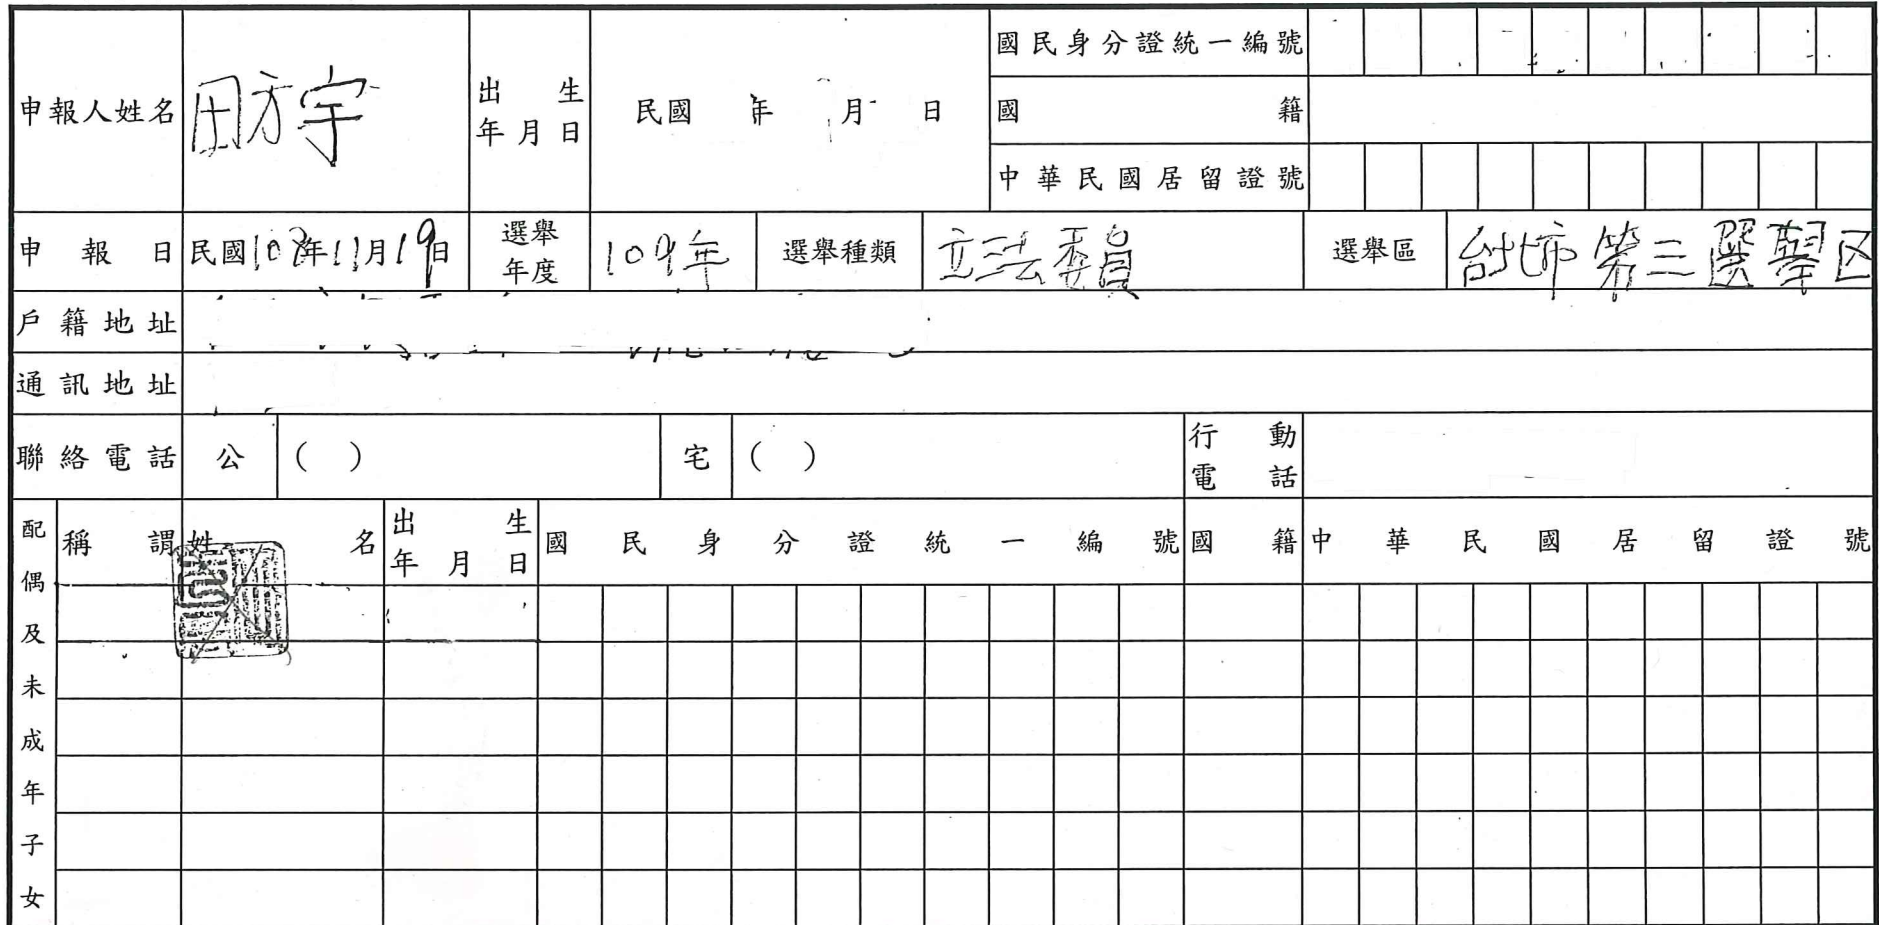 申報人姓名 田方宇 出生年月日 民國 年 月 日 國民身分證統一編號
國籍
中華民國居留證號
申報日 民國108年11月19日 選舉年度 109年 選舉種類 立法委員 選舉區 台北市第三選舉区
戶籍地址
通訊地址
聯絡電話 公 ( ) 宅 ( ) 行動電話
配偶及未成年子女 稱謂 姓名 出生年月日 國民身分證統一編號 國籍 中華民國居留證號